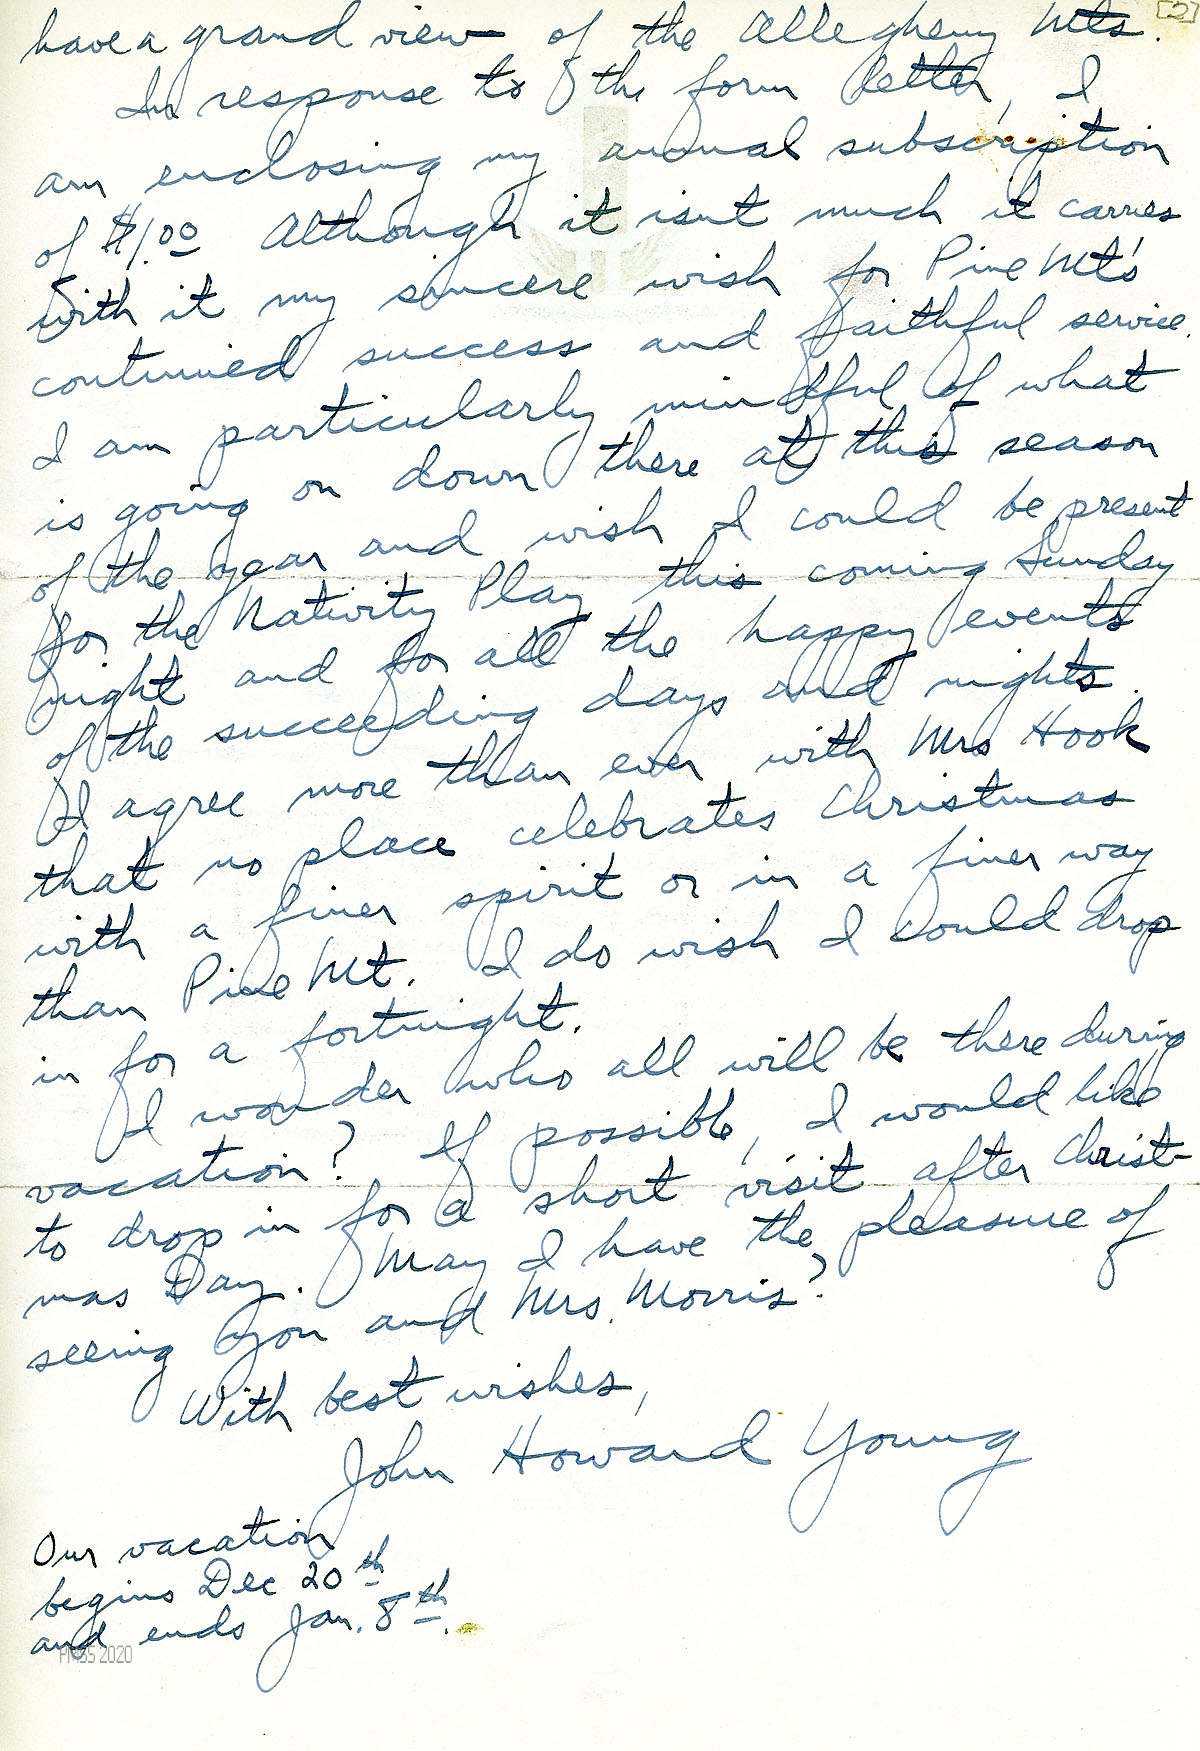 [2]
have a grand view of the Allegheny Mts.
In response to the form letter, I
am enclosing my annual subscription
of $1.00 Although it isnt much it carries
with it my sincere wish for Pine Mt's
continued success and faithful service.
I am particularly mindful of what
is going on down there at this season
of the year and wish I could be present
for the Nativity Play this coming Sunday
night and for all the happy events
of the succeeding days and nights.
I agree more than ever with Mrs Hook
that no place celebrates Christmas
with a finer spirit or in a finer way
than Pine Mt. I do wish I could drop
in for a fortnight.
I wonder who all will be there during
vacation? If possible, I would like
to drop in for a short visit after Christ-
mas Day. May I have the pleasure of
seeing you and Mrs. Morris?
With best wishes,
John Howard Young
Our vacation
begins Dec 20th
and ends Jan. 8th.
PMSS 2020